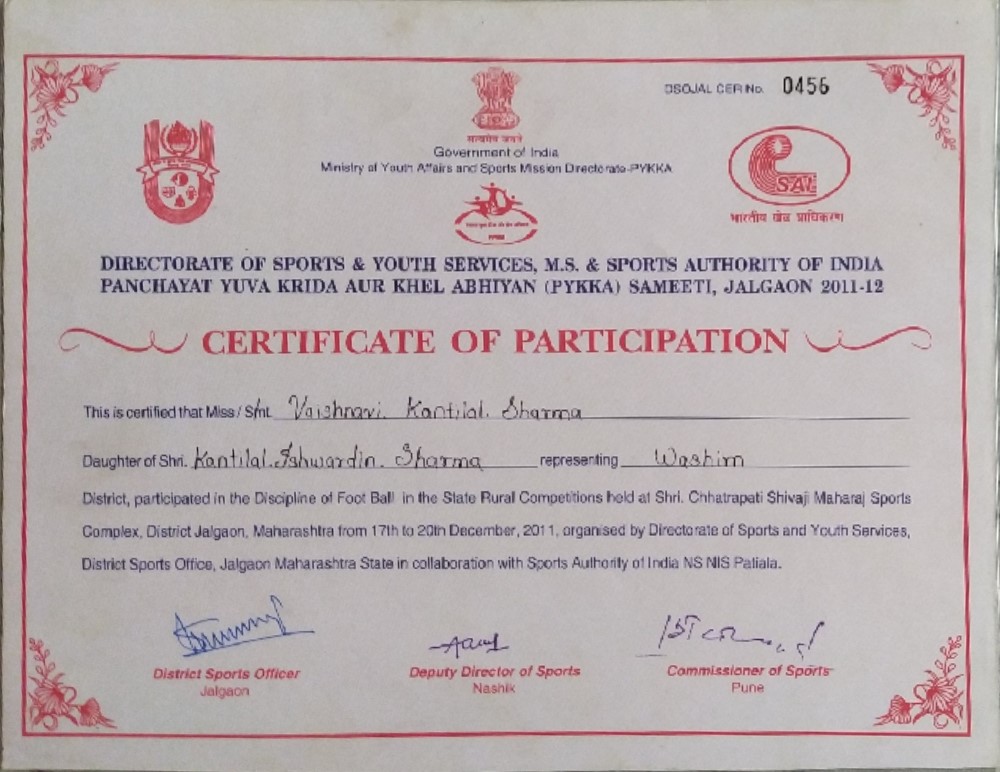 DSOJAL CER No. 0456
सत्यमेव जयते
Government of India
Ministry of Youth Affairs and Sports Mission Directorate-PYKKA
SAI
भारतीय खेल प्राधिकरण
DIRECTORATE OF SPORTS & YOUTH SERVICES, M.S. & SPORTS AUTHORITY OF INDIA
PANCHAYAT YUVA KRIDA AUR KHEL ABHIYAN (PYKKA) SAMEETI, JALGAON 2011-12
CERTIFICATE OF PARTICIPATION
This is certified that Miss / Smt. Vaishnavi. Kantilal. Sharma
Daughter of Shri. Kantilal. Ishwardin. Sharma representing Washim
District, participated in the Discipline of Foot Ball in the State Rural Competitions held at Shri. Chhatrapati Shivaji Maharaj Sports
Complex, District Jalgaon, Maharashtra from 17th to 20th December, 2011, organised by Directorate of Sports and Youth Services,
District Sports Office, Jalgaon Maharashtra State in collaboration with Sports Authority of India NS NIS Patiala.
District Sports Officer
Jalgaon
Deputy Director of Sports
Nashik
Commissioner of Sports
Pune